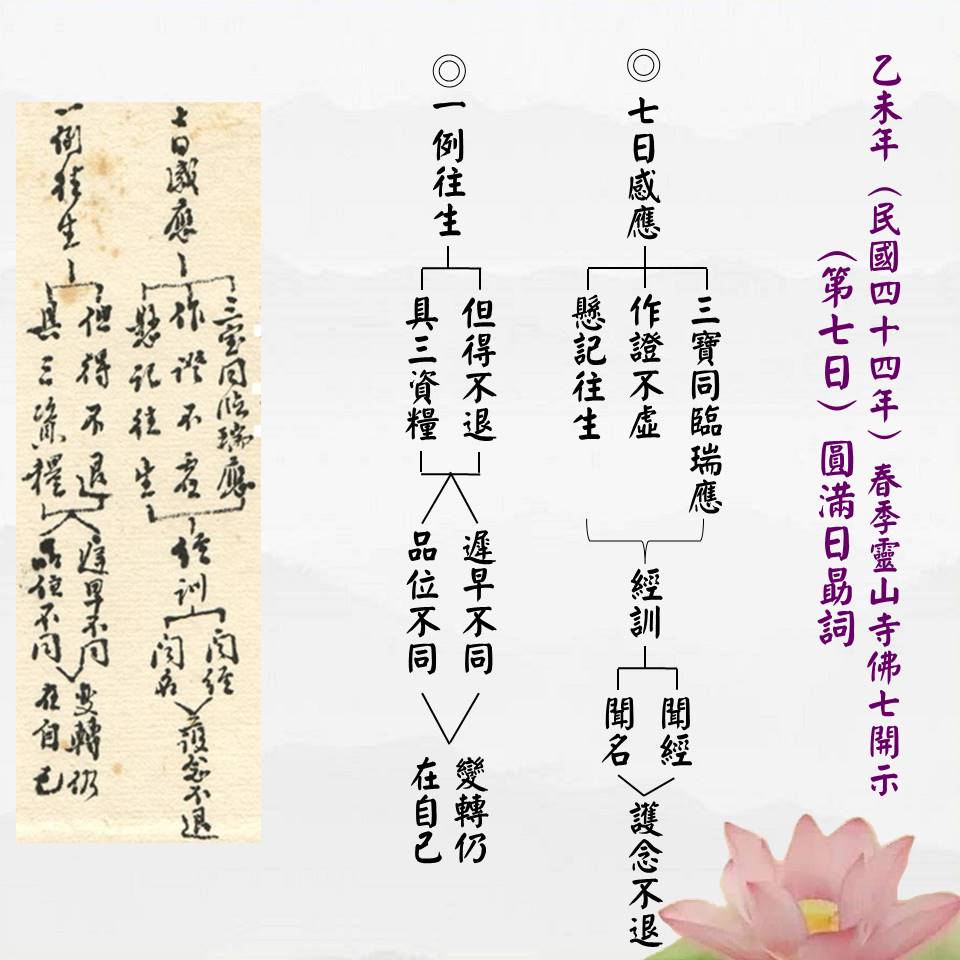 乙未年（民國四十四年）春季靈山寺佛七開示
（第七日）圓滿日勗詞
◎七日感應
三寶同臨瑞應
作證不虛
懸記往生
經訓
聞經
聞名
護念不退
◎一例往生
但得不退
具三資糧
遲早不同
品位不同
變轉仍
在自己
七日感應
三宝同临瑞應
作證不虛
懸記往生
經訓
闻經
闻名
護念不退
一例往生
但得不退
具三資糧
遲早不同
品位不同
变轉仍
在自己